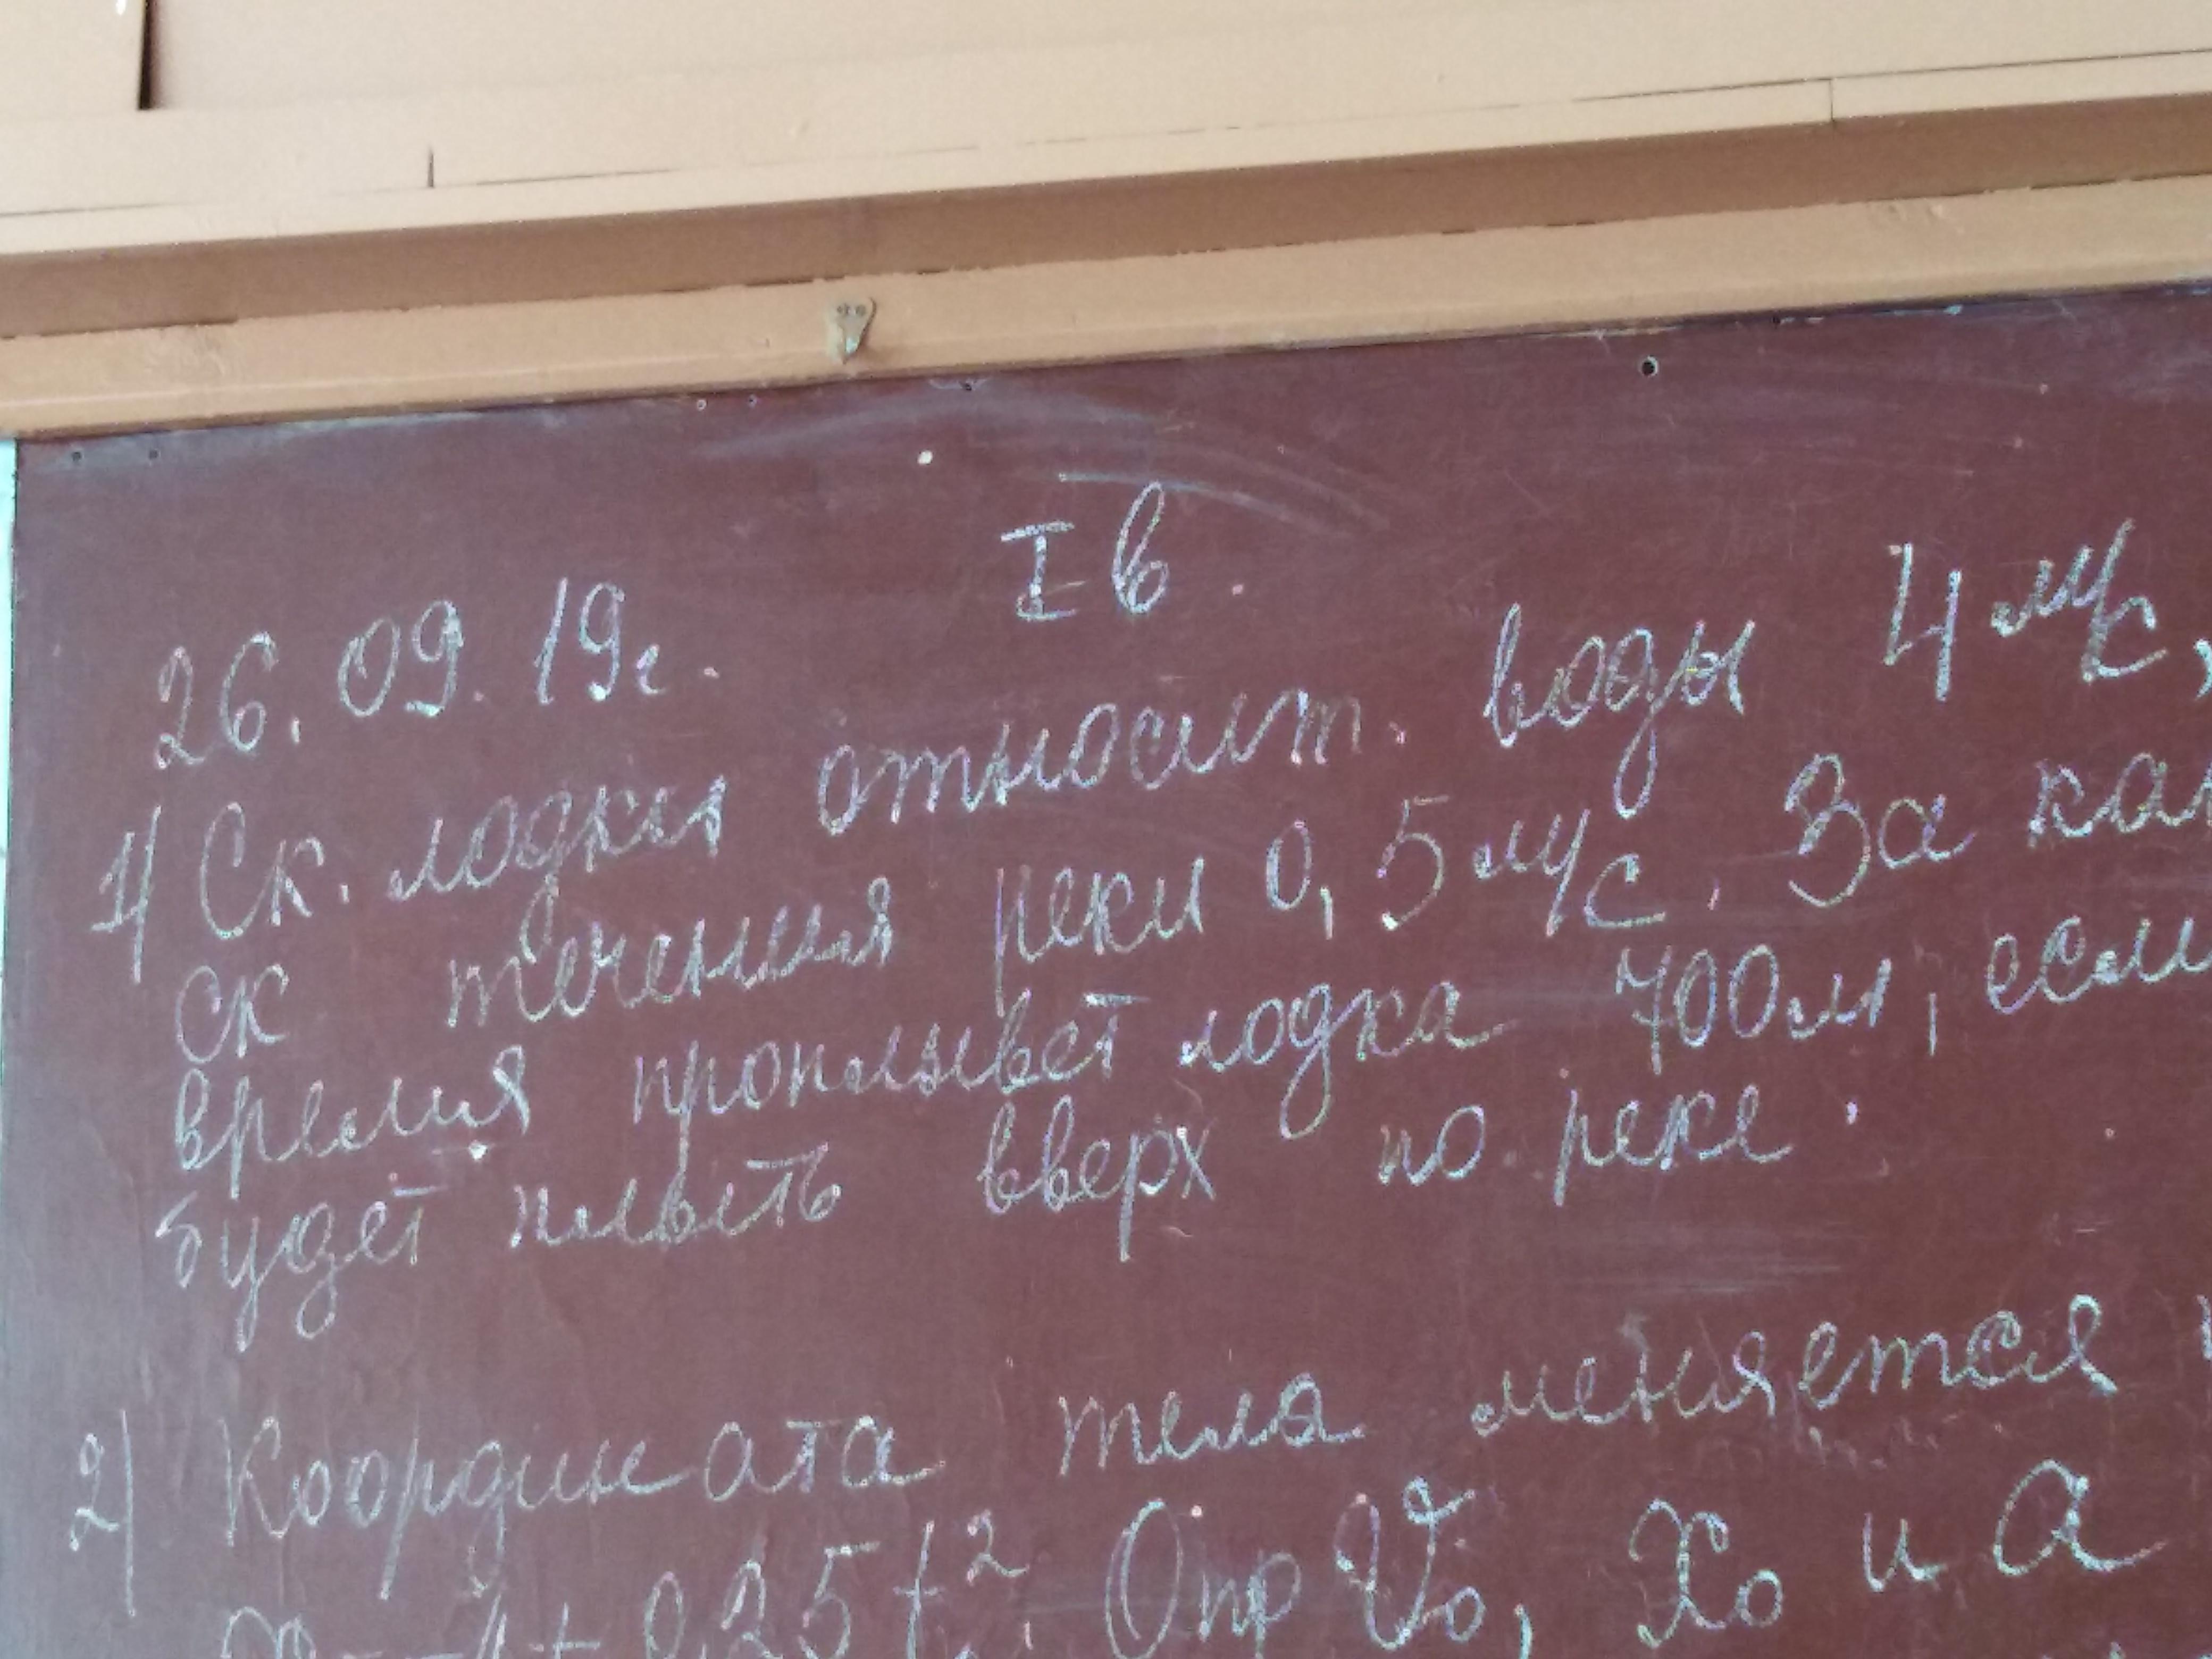 I в.
26.09.19г.
1) Ск. лодки относит. воды 4 м/с,
ск течения реки 0,5 м/с. За как
время проплывет лодка 700м, если
будет плыть вверх по реке.
2) Координата тела меняется
0,25t². Опр V₀, X₀ и a